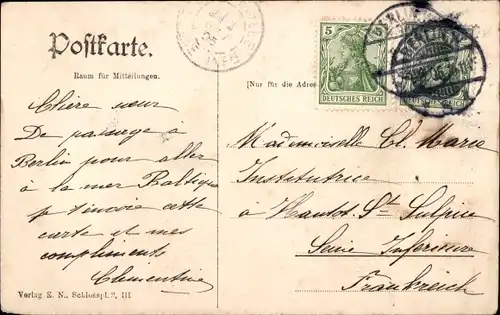 Postkarte.
Raum für Mitteilungen.
[Nur für die Adres
5
DEUTSCHES REICH
DEUTSCHES REICH
BERLIN
Chère sœur
De passage à
Berlin pour aller
à la mer Baltique
je t'envoie cette
carte et mes
compliments
Clementine
Mademoiselle Cl. Marie
Institutrice
à Hautot St Sulpice
Seine Inférieure
Frankreich
Verlag K. N., Schlosspl. 2, III